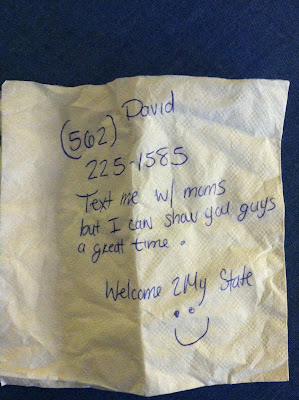 David
(562)
225-1585
Text me w/ moms
but I can show you guys
a great time.
Welcome 2My State